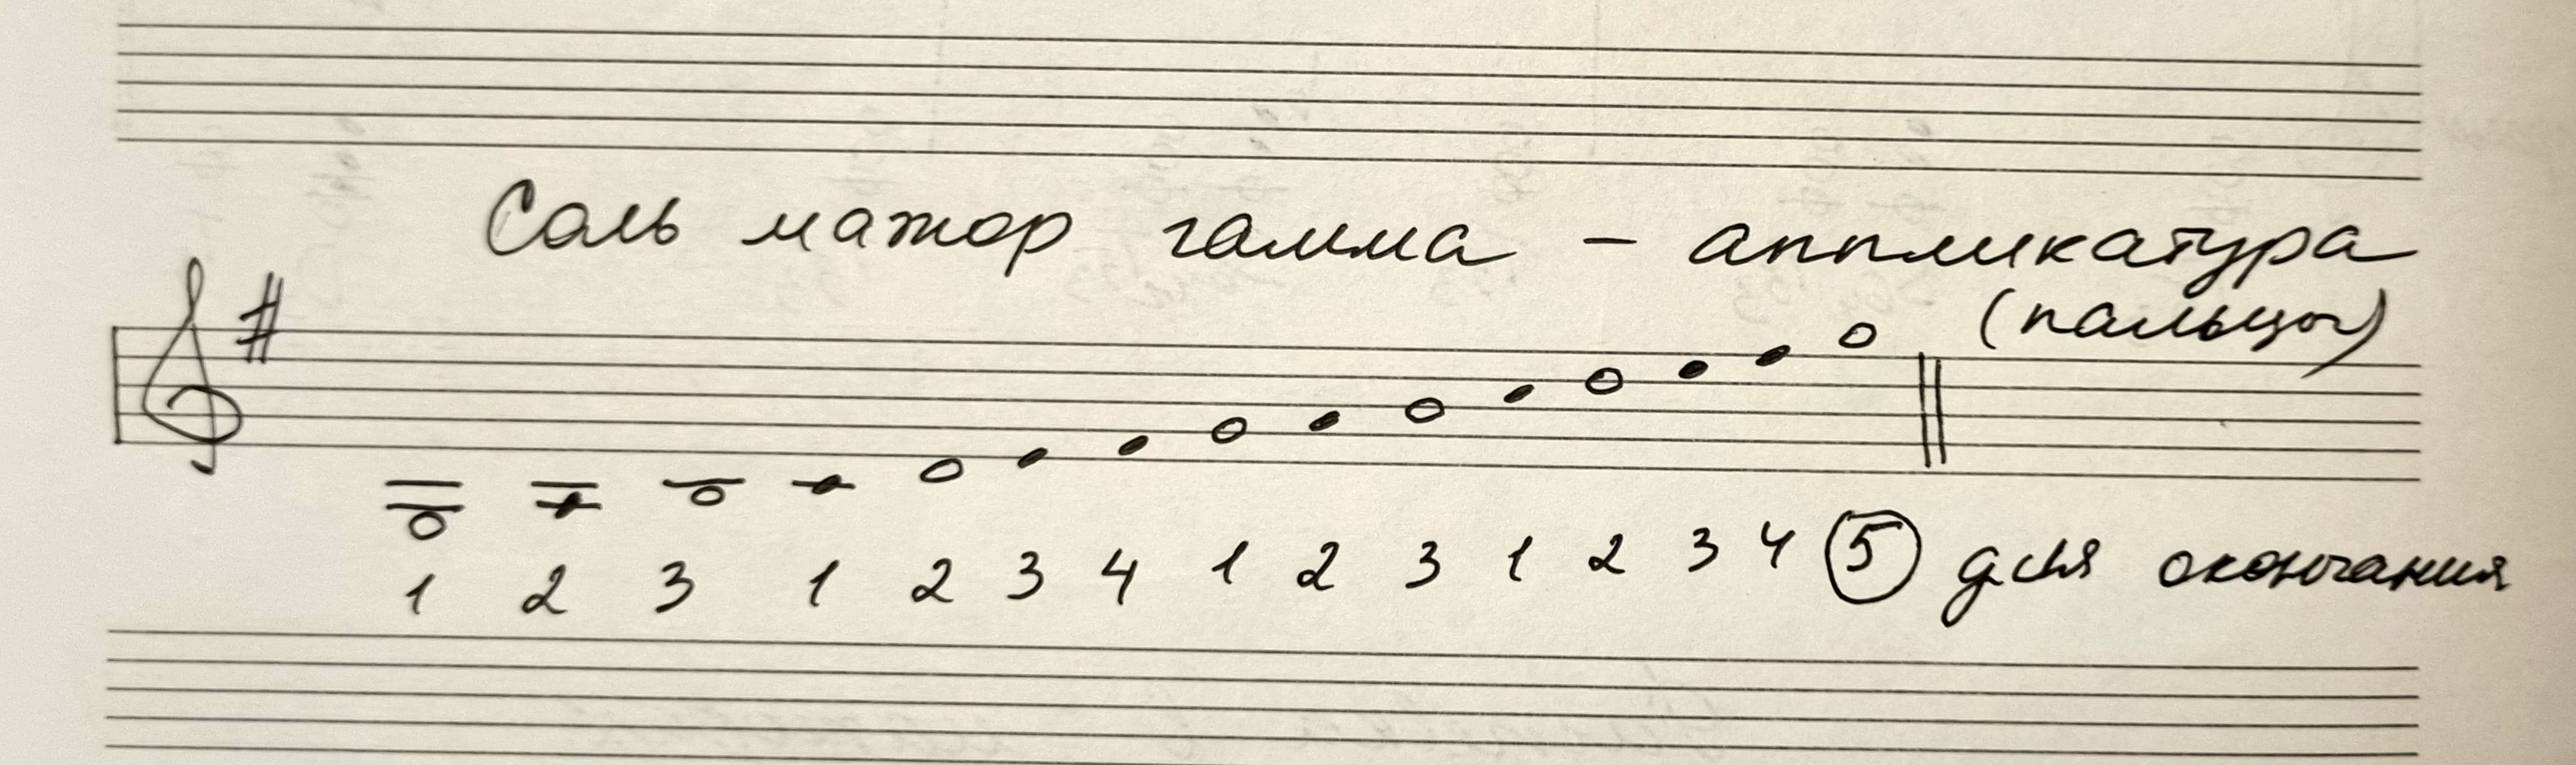 Соль мажор гамма - аппликатура
(пальцы)
1 2 3 1 2 3 4 1 2 3 1 2 3 4 5 для окончания